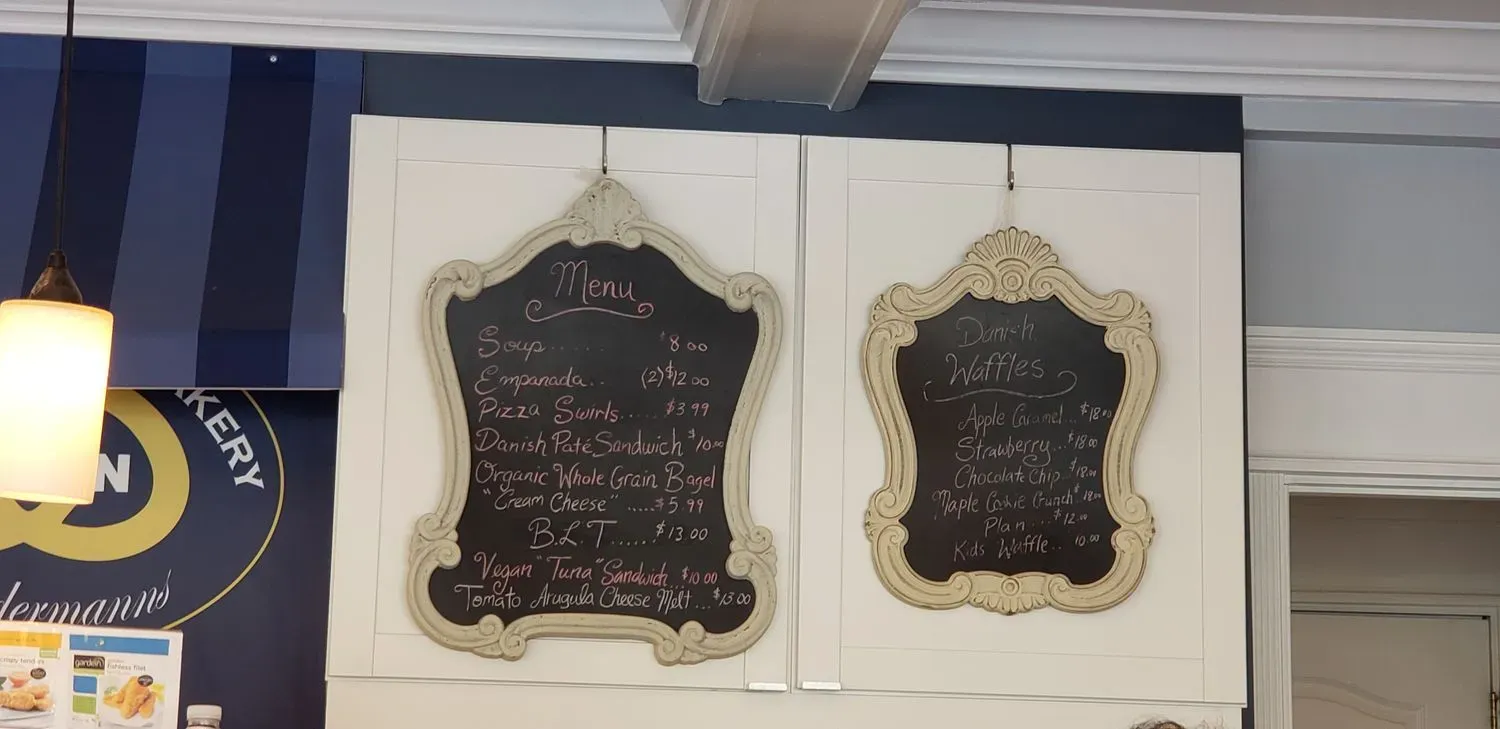 KERY
N
dermanns
crispy tenders
gardein
fishless filet
Menu
Soup...... $8 00
Empanada.. (2) $12 00
Pizza Swirls..... $3 99
Danish Paté Sandwich $10.00
Organic Whole Grain Bagel
"Cream Cheese" .....$5.99
B.L.T...... $13.00
Vegan "Tuna" Sandwich.. $10 00
Tomato Arugula Cheese Melt... $13.00
Danish
Waffles
Apple Caramel... $18 00
Strawberry... $18.00
Chocolate Chip.. $18.00
Maple Cookie Crunch $18.00
Plan... $12.00
Kids Waffle.. 10.00